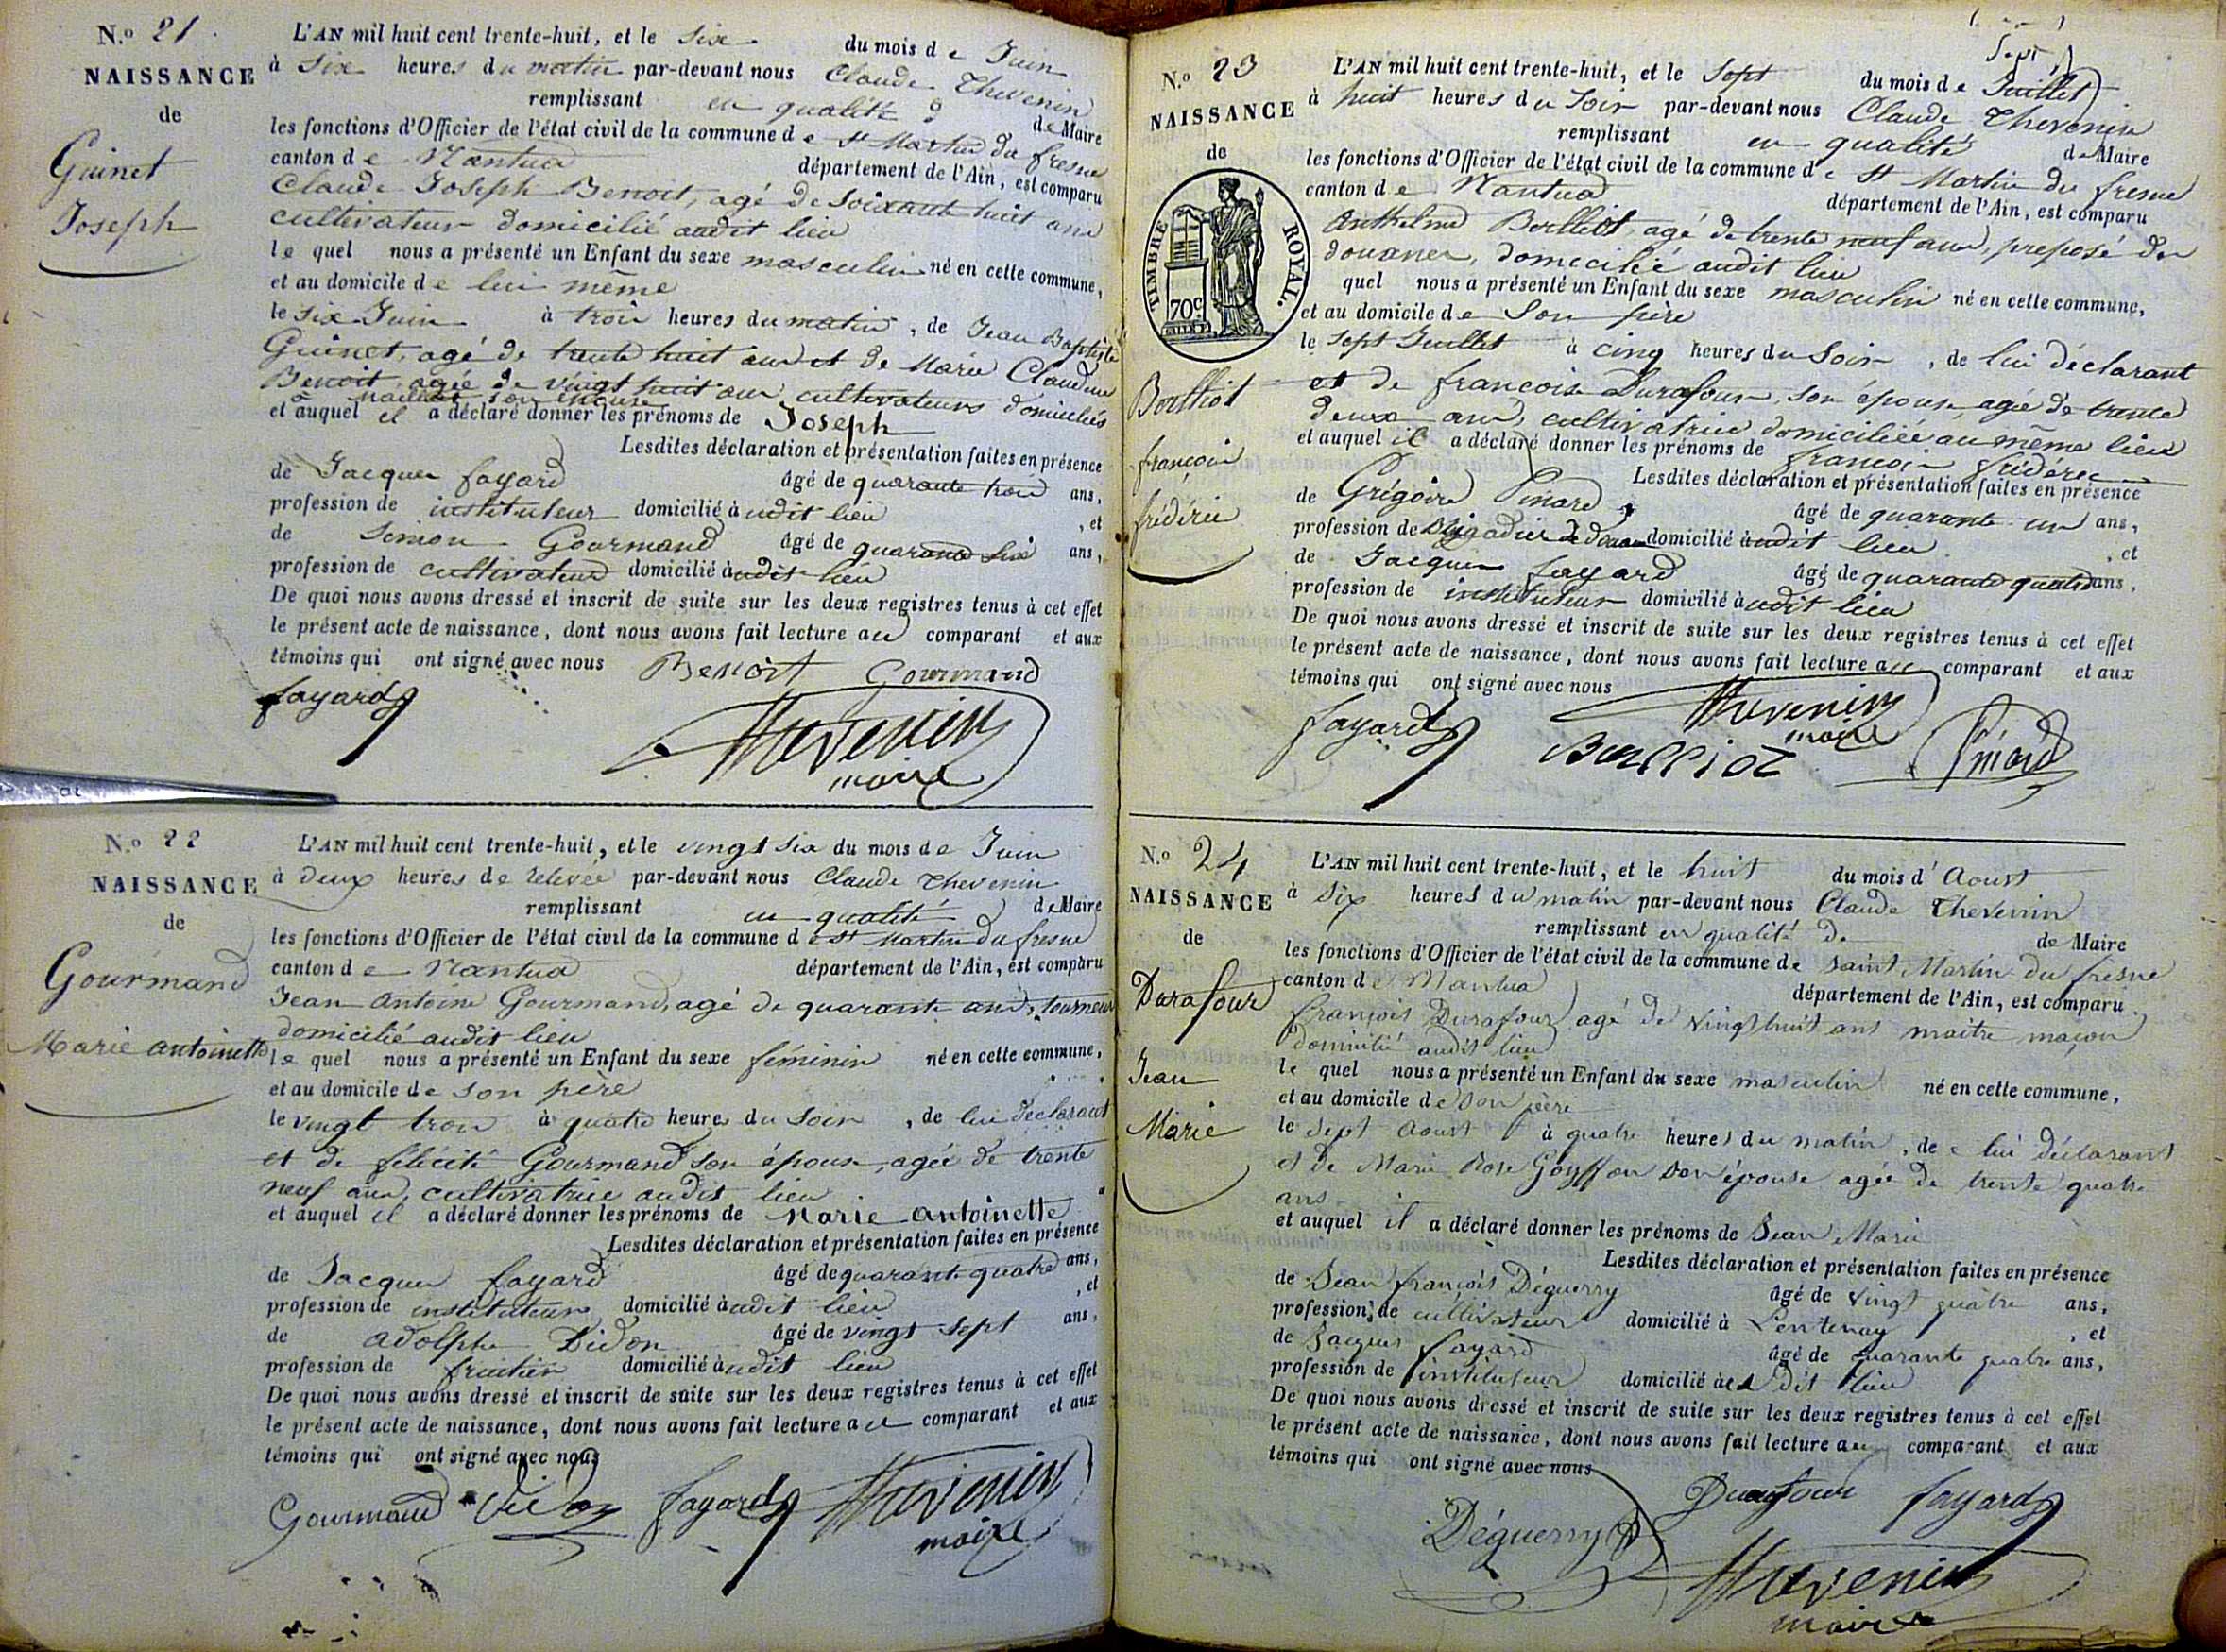 N.o 21
NAISSANCE
de
Guinet
Joseph
L'AN mil huit cent trente-huit, et le Six du mois de Juin
à Six heures du matin par-devant nous Claude Thevenin
remplissant en qualité de Maire
les fonctions d'Officier de l'état civil de la commune de St Martin du fresne
canton de Nantua département de l'Ain, est comparu
Claude Joseph Benoit, agé de Soixante huit ans
cultivateur domicilié audit lieu
le quel nous a présenté un Enfant du sexe masculin né en cette commune,
et au domicile de lui même
le Six Juin à trois heures du matin, de Jean Baptiste
Guinet, agé de trente huit ans et de Marie Claudine
Benoit agée de vingt huit ans cultivateurs domiciliés
à
et auquel il a déclaré donner les prénoms de Joseph
Lesdites déclaration et présentation faites en présence
de Jacques fayard âgé de quarante trois ans,
profession de instituteur domicilié audit lieu , et
de Simon Gourmand âgé de quarante Six ans,
profession de cultivateur domicilié audit lieu
De quoi nous avons dressé et inscrit de suite sur les deux registres tenus à cet effet
le présent acte de naissance, dont nous avons fait lecture au comparant et aux
témoins qui ont signé avec nous Benoit Gourmand
fayard
Thevenin
maire
N.o 22
NAISSANCE
de
Gourmand
Marie antoinette
L'AN mil huit cent trente-huit, et le vingt Six du mois de Juin
à deux heures de relevée par-devant nous Claude Thevenin
remplissant en qualité de Maire
les fonctions d'Officier de l'état civil de la commune de St Martin du fresne
canton de Nantua département de l'Ain, est comparu
Jean antoine Gourmand, agé de quarante ans, tourneur
domicilié audit lieu
le quel nous a présenté un Enfant du sexe féminin né en cette commune,
et au domicile de son père
le vingt trois à quatre heures du Soir, de lui déclarant
et de félicité Gourmand son épouse, agée de trente
neuf ans, cultivatrice audit lieu
et auquel il a déclaré donner les prénoms de Marie antoinette
Lesdites déclaration et présentation faites en présence
de Jacques fayard âgé de quarante quatre ans,
profession de instituteur domicilié audit lieu , et
de adolphe Didon âgé de vingt Sept ans,
profession de fruitier domicilié audit lieu
De quoi nous avons dressé et inscrit de suite sur les deux registres tenus à cet effet
le présent acte de naissance, dont nous avons fait lecture au comparant et aux
témoins qui ont signé avec nous
Gourmand Didon fayard Thevenin
maire
Sept
N.o 23
NAISSANCE
de
TIMBRE ROYAL.
70c
Berlliot
françois
fréderic
L'AN mil huit cent trente-huit, et le Sept du mois de Juillet
à huit heures du Soir par-devant nous Claude Thevenin
remplissant en qualité de Maire
les fonctions d'Officier de l'état civil de la commune de St Martin du fresne
canton de Nantua département de l'Ain, est comparu
Anthelme Berlliot, agé de trente neuf ans, preposé des
douanes, domicilié audit lieu
quel nous a présenté un Enfant du sexe masculin né en cette commune,
et au domicile de Son père
le Sept Juillet à cinq heures du Soir, de lui déclarant
et de françoise Durafour, son épouse agée de trente
deux ans, cultivatrice domiciliée au même lieu
et auquel il a déclaré donner les prénoms de françois fréderic
Lesdites déclaration et présentation faites en présence
de Grégoire Pinard âgé de quarante un ans,
profession de Brigadier de domicilié audit lieu , et
de Jacques fayard âgé de quarante quatre ans,
profession de instituteur domicilié audit lieu
De quoi nous avons dressé et inscrit de suite sur les deux registres tenus à cet effet
le présent acte de naissance, dont nous avons fait lecture au comparant et aux
témoins qui ont signé avec nous
fayard Thevenin
maire
Berlliot Pinard
N.o 24
NAISSANCE
de
Durafour
Jean
Marie
L'AN mil huit cent trente-huit, et le huit du mois d'Aoust
à Six heures du matin par-devant nous Claude Thevenin
remplissant en qualité de de Maire
les fonctions d'Officier de l'état civil de la commune de Saint Martin du fresne
canton de Nantua département de l'Ain, est comparu
françois Durafour agé de vingt huit ans maître maçon
domicilié audit lieu
le quel nous a présenté un Enfant du sexe masculin né en cette commune,
et au domicile de son père
le sept Aoust à quatre heures du matin, de lui déclarant
et de Marie Rose Goyffon son épouse agée de trente quatre
ans
et auquel il a déclaré donner les prénoms de Jean Marie
Lesdites déclaration et présentation faites en présence
de Jean françois Déguerry âgé de vingt quatre ans,
profession de cultivateur domicilié à Lentenay , et
de Jacques fayard âgé de quarante quatre ans,
profession de instituteur domicilié au dit lieu
De quoi nous avons dressé et inscrit de suite sur les deux registres tenus à cet effet
le présent acte de naissance, dont nous avons fait lecture au comparant et aux
témoins qui ont signé avec nous
Durafour fayard
Déguerry
Thevenin
maire